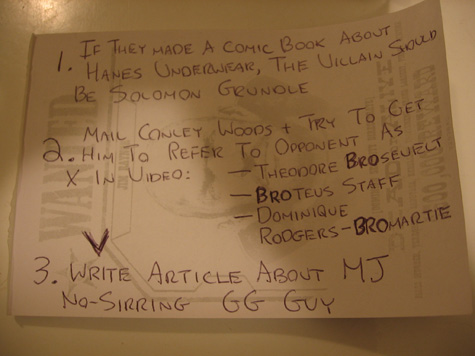 1. IF THEY MADE A COMIC BOOK ABOUT
HANES UNDERWEAR, THE VILLAIN SHOULD
BE SOLOMON GRUNDLE
MAIL CONLEY WOODS + TRY TO GET
2. HIM TO REFER TO OPPONENT AS
X IN VIDEO: — THEODORE BROSEVELT
— BROTEUS STAFF
— DOMINIQUE
RODGERS-BROMARTIE
3. WRITE ARTICLE ABOUT MJ
NO-SIRRING GG GUY